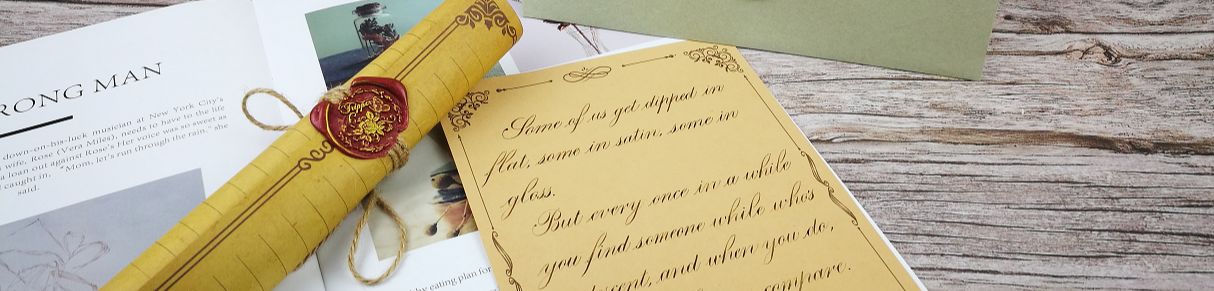 RONG MAN
down-on-his-luck musician at New York City's
wife, Rose (Vera Miles) needs to have to the life
a loan out against Rose's Her voice was so sweet as
caught in, "Mom, let's run through the rain." she
said.
by eating plan for
Some of us get dipped in
flat, some in satin, some in
gloss.
But every once in a while
you find someone while who's
and when you do,
compare.